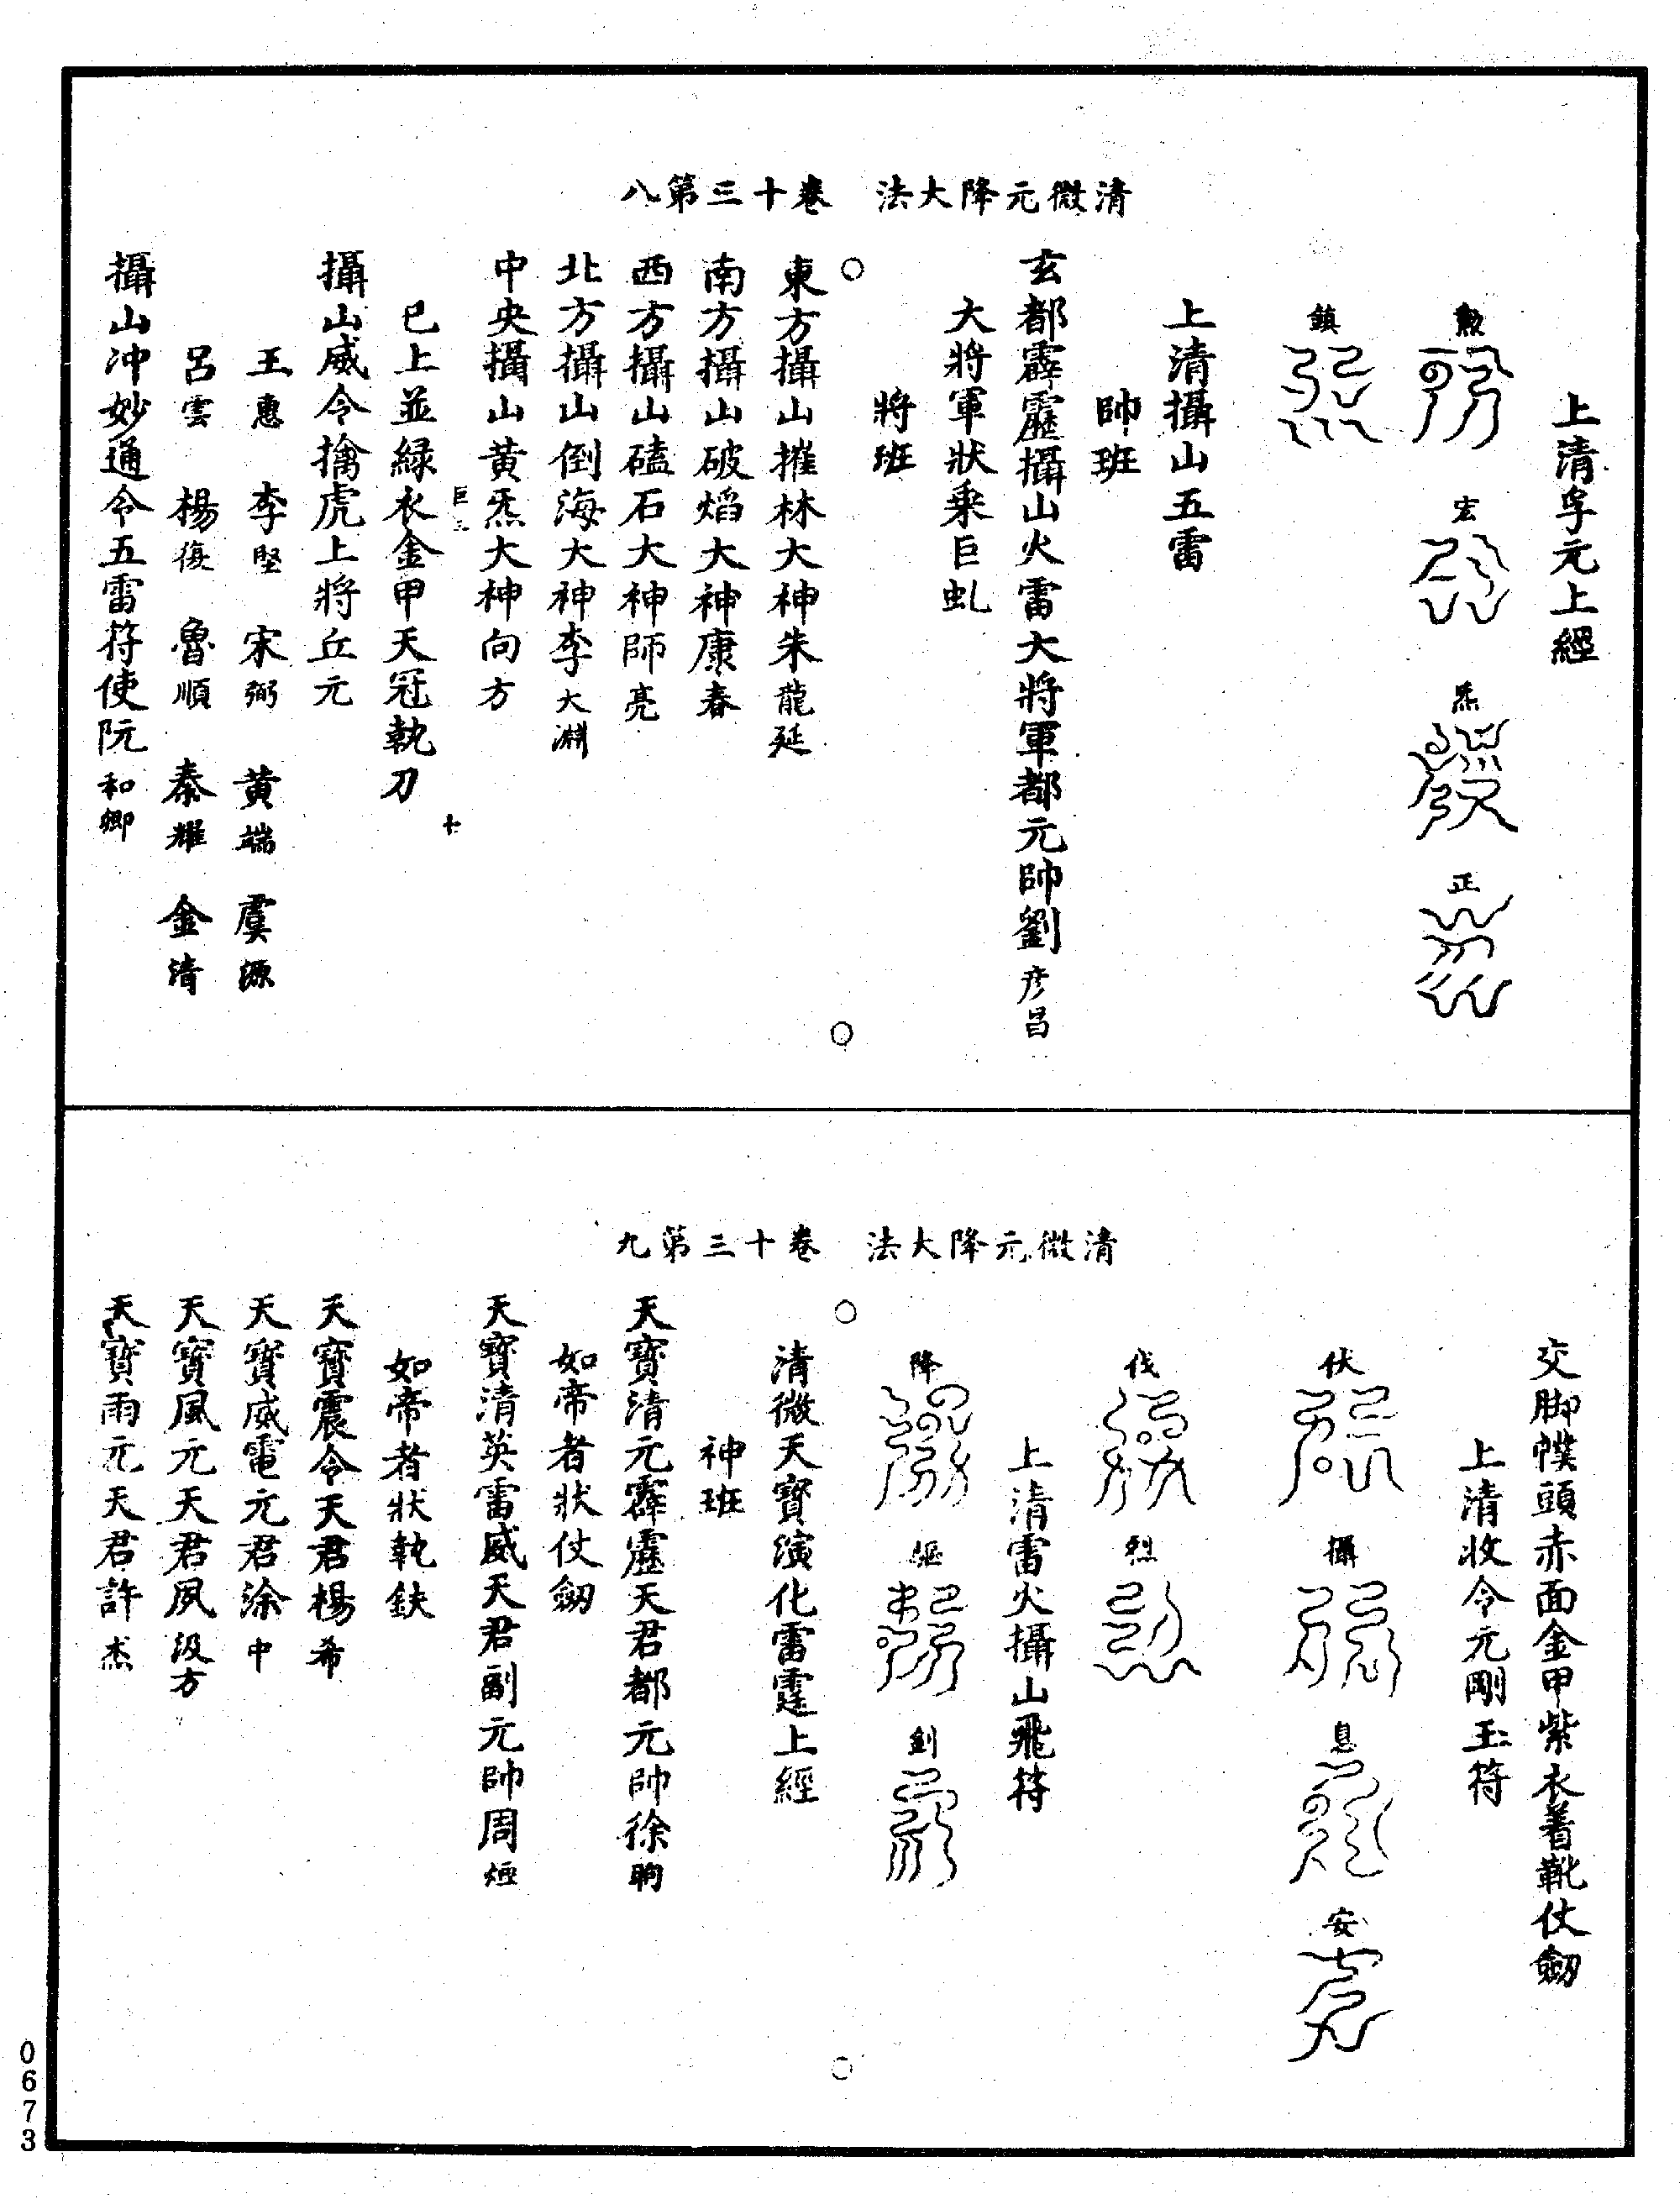 清微元降大法　卷十三第八
上清孚元上經
勲　宏　炁　正
鎮
上清攝山五雷
帥班
玄都霹靂攝山火雷大將軍都元帥劉彦昌
大將軍狀乗巨虬
將班
東方攝山摧林大神朱龍延
南方攝山破焰大神康春
西方攝山磕石大神師亮
北方攝山倒海大神李大淵
中央攝山黄炁大神向方
巨三　十
已上並緑衣金甲天冠執刀
攝山威令擒虎上將丘元
王惠　李堅　宋弼　黄端　虞源
呂雲　楊復　魯順　秦耀　金清
攝山冲妙通令五雷符使阮和卿
清微元降大法　卷十三第九
交脚幞頭赤面金甲紫衣着靴仗劒
上清收令元剛玉符
伏　攝　息　安
伐　烈
上清雷火攝山飛符
降　驅　剑
清微天寳演化雷霆上經
神班
天寳清元霹靂天君都元帥徐晌
如帝者狀仗劒
天寳清英雷威天君副元帥周烜
如帝者狀執鈇
天寳震令天君楊希
天寳威電元君涂中
天寳風元天君夙汲方
天寳雨元天君許杰
0673